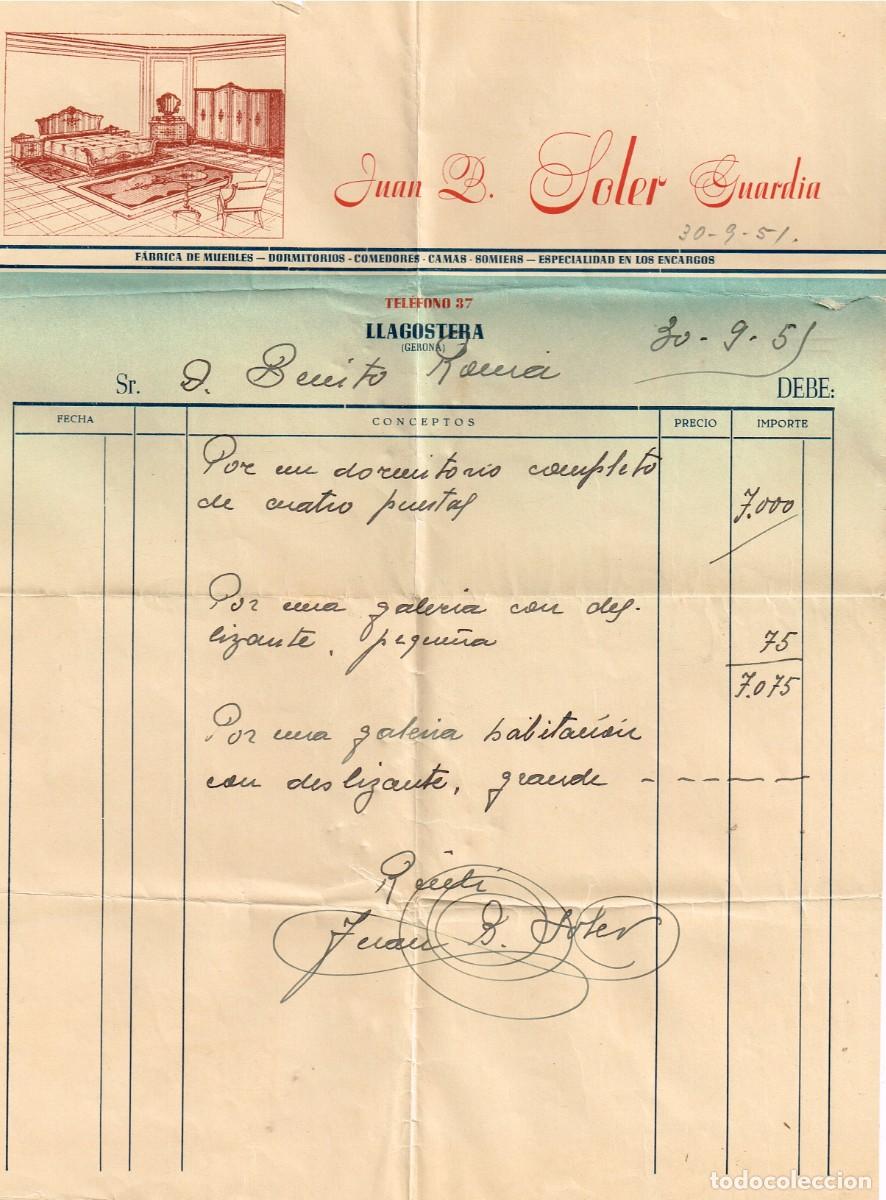 Juan B. Soler Guardia
30-9-51.
FÁBRICA DE MUEBLES — DORMITORIOS - COMEDORES - CAMAS - SOMIERS — ESPECIALIDAD EN LOS ENCARGOS
TELÉFONO 37
LLAGOSTERA
(GERONA)
30-9-51
Sr. D. Benito Romá
DEBE:
FECHA CONCEPTOS PRECIO IMPORTE
Por un dormitorio completo
de cuatro puertas 7.000
Por una galeria con des-
lizante, pequeña 75
7.075
Por una galeria habitación
con deslizante, grande - - - - -
Recibí
Juan B. Soler
todocoleccion